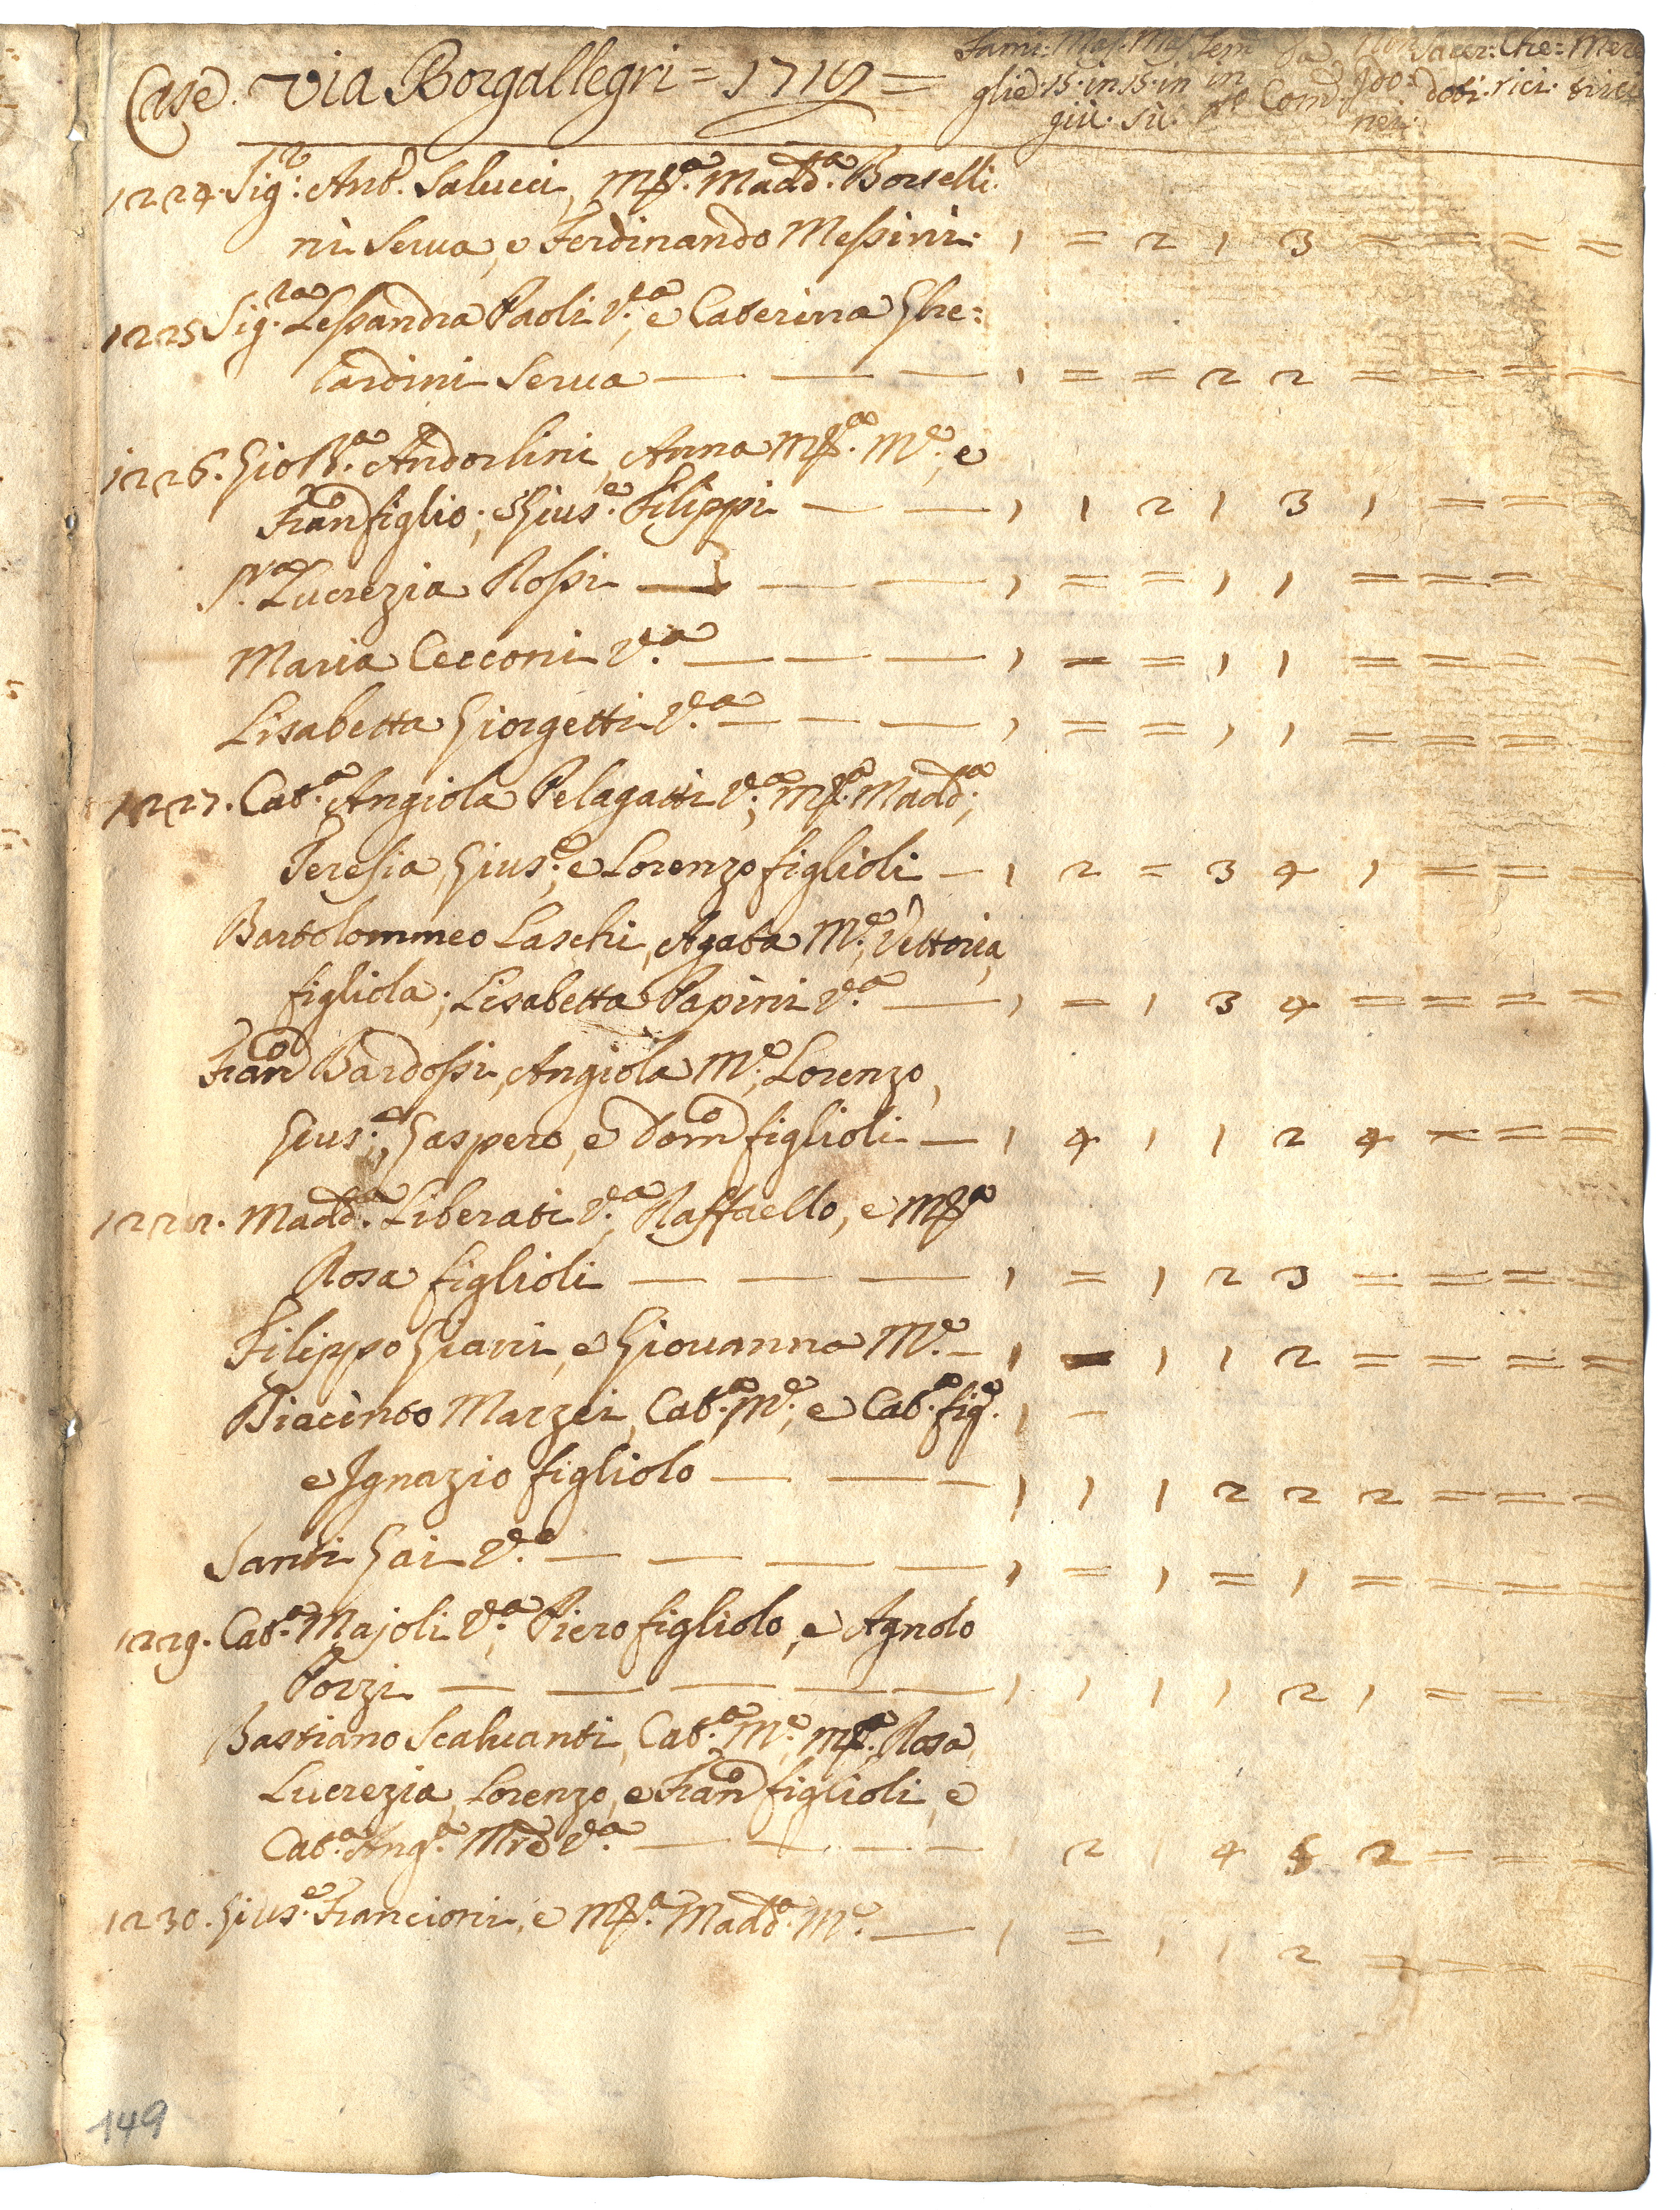 Case. Via Borgallegri = 1718 =
Fami: Mas. Mas Fem Da Non Sacer: Che: Mere
glie. 15. in 15. in in Com. Ido: doti. rici. trici
giù. sù. gle nei.
1224. Sig:re Ant.o Salucci, Mª. Madd.a Borselli
ni Serva, e Ferdinando Messini. 1 = 2 1 3 = = = =
1225 Sig.ra Lessandra Paoli V.a, e Caterina Ghe=
rardini Serva — — — 1 = = 2 2 = = = =
1226. Gio B.a Andorlini, Anna Mª. M.e, e
Fran.o figlio; Gius.e Filippi — — 1 1 2 1 3 1 = = =
S.ra Lucrezia Rossi — — — 1 = = 1 1 = = = =
Maria Cecconi V.a — — — 1 = = 1 1 = = = =
Lisabetta Giorgetti V.a — — — 1 = = 1 1 = = = =
1227. Cat.a Angiola Pelagatti V.a; Mª. Madd.a,
Teresia, Gius.e, e Lorenzo figlioli — 1 2 = 3 4 1 = = =
Bartolommeo Laschi, Agata M.e, Vettoria,
figliola; Lisabetta Papini V.a — 1 = 1 3 4 = = = =
Fran.o Bardossi, Angiola M.e, Lorenzo,
Gius.e, Gaspero, e Dom.o figlioli — 1 4 1 1 2 4 = = =
1228. Madd.a Liberati V.a, Raffaello, e Mª
Rosa figlioli — — — 1 = 1 2 3 = = = =
Filippo Giani, e Giovanna M.e — 1 = 1 1 2 = = = =
Diacinto Marzei, Cat.a M.e, e Cat.a fig.a 1 -
e Ignazio figliolo — — — 1 1 1 2 2 2 = = =
Santi Gai V.o — — — — 1 = 1 = 1 = = = =
1229. Cat.a Majoli V.a, Piero figliolo, e Agnolo
Porzi — — — — — 1 1 1 1 2 1 = = =
Bastiano Scalvanti, Cat.a M.e, Mª. Rosa,
Lucrezia, Lorenzo, e Fran.o figlioli, e
Cat.a Ang.a Mre V.a — — — — 1 2 1 4 5 2 = = =
1230. Gius.e Francioni, e Mª. Madd.a M.e — 1 = 1 1 2 = = = =
149